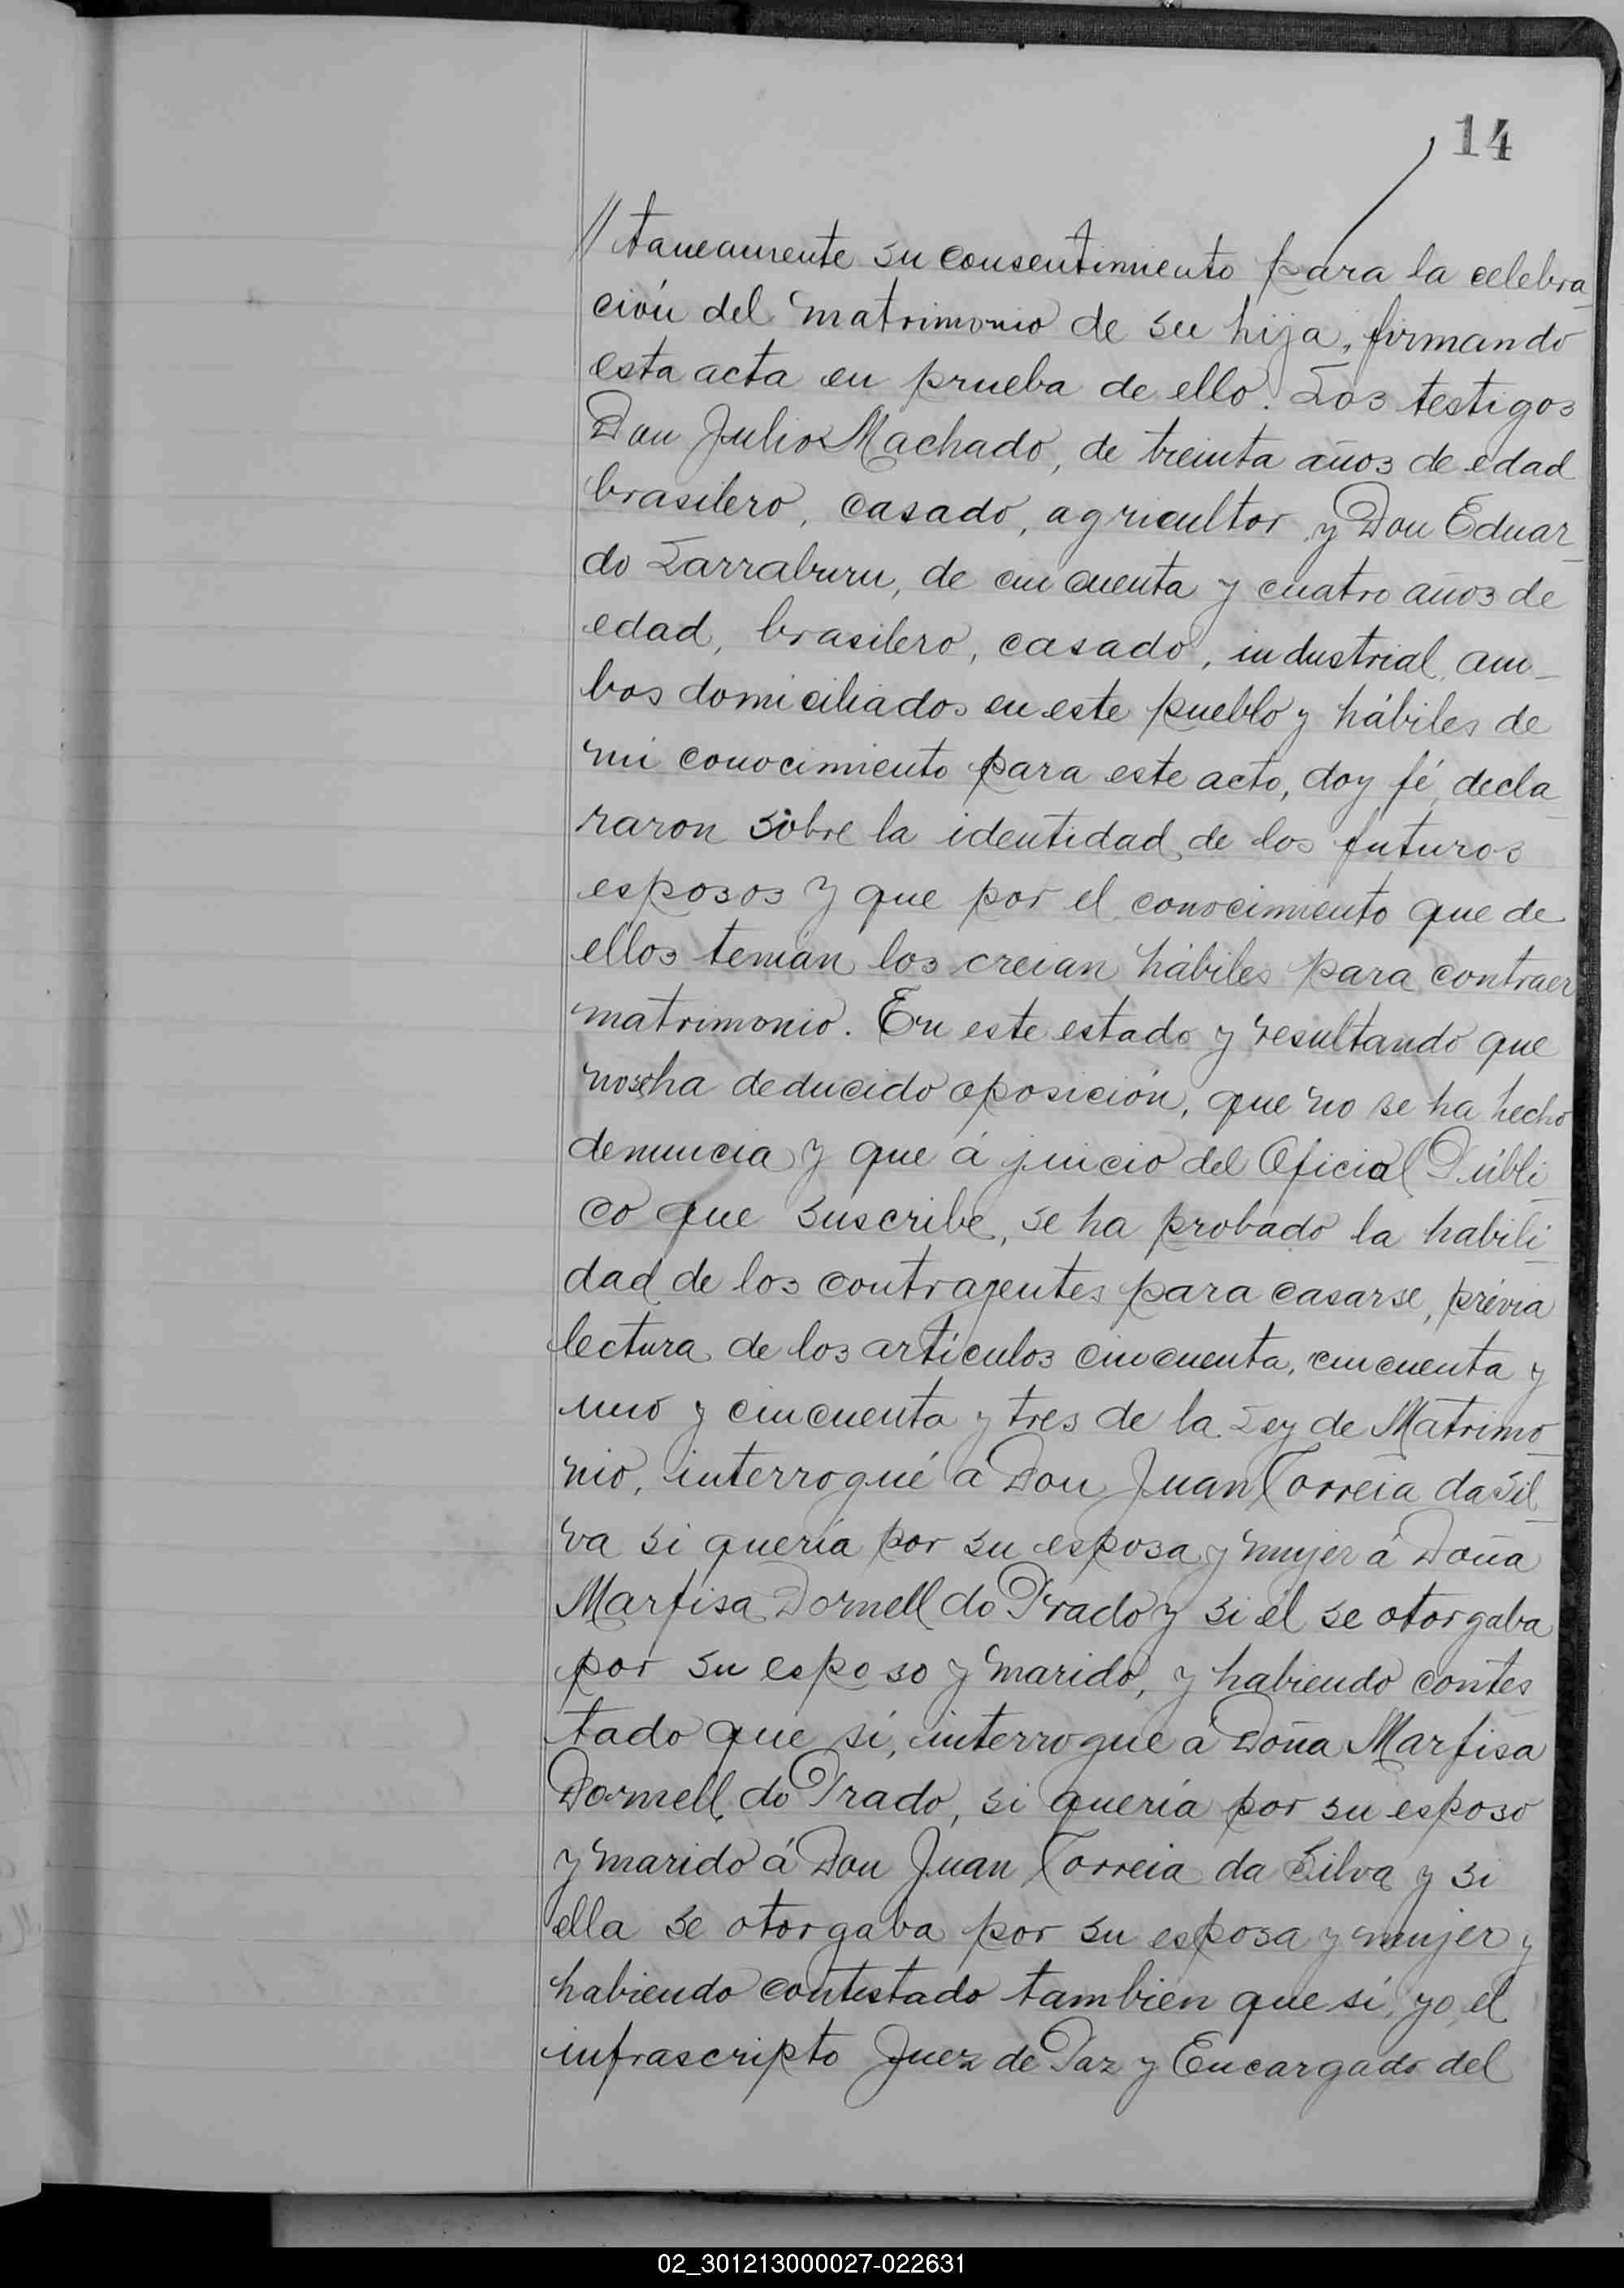 14
// taneamente su consentimiento para la celebra_
ción del matrimonio de su hija, firmando
esta acta en prueba de ello. Los testigos
Don Julio Machado, de treinta años de edad
brasilero, casado, agricultor y Don Eduar_
do Larraburu, de cincuenta y cuatro años de
edad, brasilero, casado, industrial, am_
bos domiciliados en este pueblo y hábiles de
mi conocimiento para este acto, doy fé, decla_
raron sobre la identidad de los futuros
esposos y que por el conocimiento que de
ellos tenian los creian hábiles para contraer
matrimonio. En este estado y resultando que
no se ha deducido oposición, que no se ha hecho
denuncia y que á juicio del Oficial Públi_
co que suscribe, se ha probado la habili_
dad de los contrayentes para casarse, prévia
lectura de los artículos cincuenta, cincuenta y
uno y cincuenta y tres de la Ley de Matrimo_
nio, interrogué a Don Juan Correia da Sil_
va si quería por su esposa y mujer á Doña
Marfisa Dornell do Prado y si él se otorgaba
por su esposo y marido, y habiendo contes
tado que sí, interrogue á Doña Marfisa
Dornell do Prado, si quería por su esposo
y marido á Don Juan Correia da Silva y si
ella se otorgaba por su esposa y mujer y
habiendo contestado tambien que sí, yo, el
infrascripto Juez de Paz y Encargado del
02_301213000027-022631